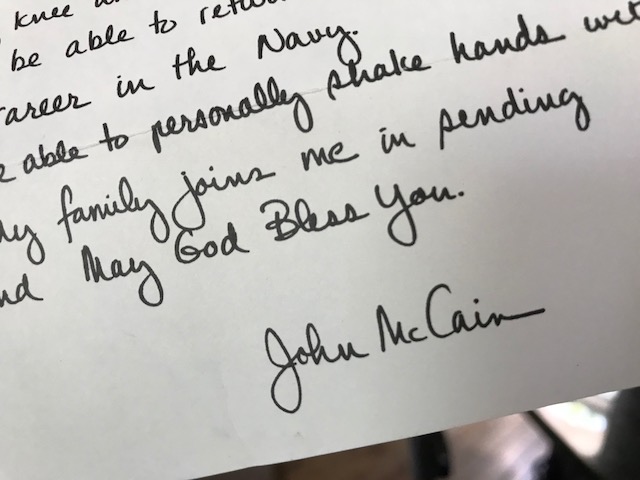 knee
be able to
career in the Navy.
able to personally shake hands
family joins me in sending
May God Bless You.
John McCain